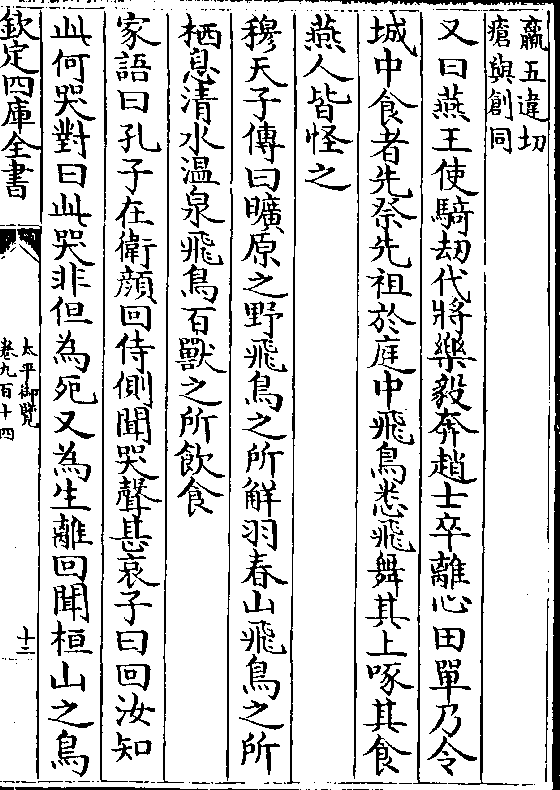 羸五違切
瘡與創同
又曰燕王使騎劫代將樂毅奔趙士卒離心田單乃令
城中食者先祭先祖於庭中飛鳥悉飛舞其上啄其食
燕人皆怪之
穆天子傳曰曠原之野飛鳥之所解羽舂山飛鳥之所
栖息清水溫泉飛鳥百獸之所飲食
家語曰孔子在衛顔回侍側聞哭聲甚哀子曰回汝知
此何哭對曰此哭非但為死又為生離回聞桓山之鳥
欽定四庫全書
太平御覽
卷九百十四
十二